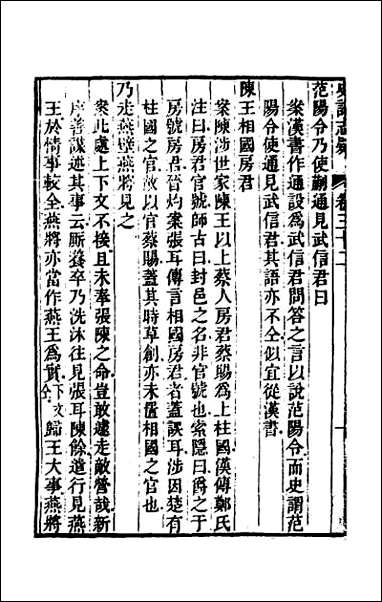 史記志疑 卷三十二
范陽令乃使蒯通見武信君曰
案漢書作通設爲武信君問答之言以說范陽令而史謂范
陽令使通見武信君其語亦不仝似宜從漢書
陳王相國房君
案陳涉世家陳王以上蔡人房君蔡賜爲上柱國漢傳鄭氏
注曰房君官號師古曰封邑之名非官號也索隱曰爵之于
房號房君晉灼案張耳傳言相國房君者蓋誤耳涉因楚有
柱國之官故以官蔡賜蓋其時草創亦未置相國之官也
乃走燕壁燕將見之
案此處上下文不接且未奉張陳之命豈敢遽走敵營哉新
序善謀述其事云厮養卒乃洗沐往見張耳陳餘遣行見燕
王於情事較全燕將亦當作燕王爲實下文歸王大事燕將
仝